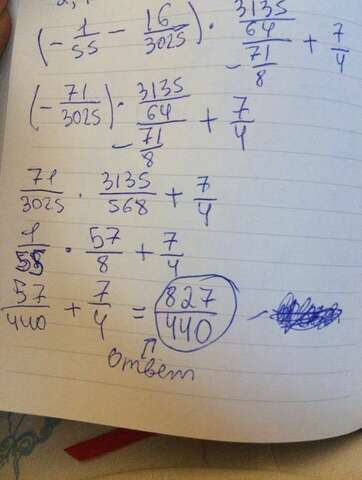 (-1/55 - 16/3025) · 3135/64/-71/8 + 7/4
(-71/3025) · 3135/64/-71/8 + 7/4
71/3025 · 3135/568 + 7/4
1/55 · 57/8 + 7/4
57/440 + 7/4 = 827/440
ответ